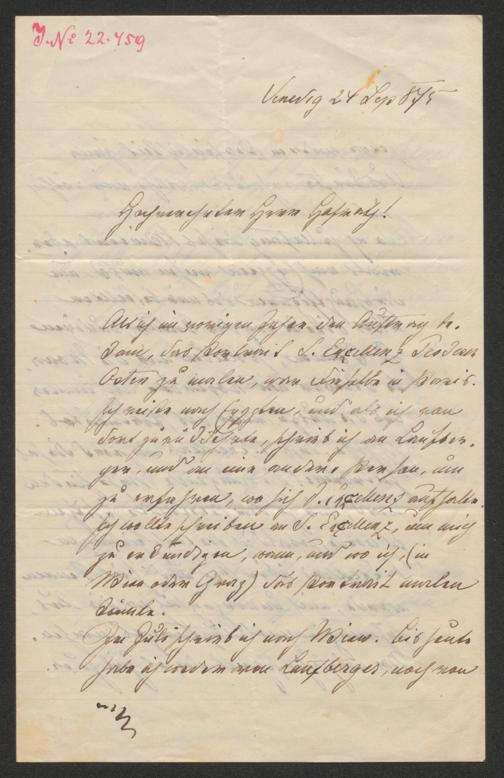 J. No 22.459
Venedig 24 Sep 875
Hochverehrter Herr Hofrath!
Als ich im vorigen Jahre den Auftrag be-
kam, das Portrait S. Excellenz
Osten zu malen, war derselbe in Paris.
Ich reiste nach Egypten, und als ich von
dort zurückkehrte, schrieb ich an Laufber-
ger, und an eine andere Person, um
zu erfahren, wo sich S. Excellenz aufhalte.
Ich wollte schreiben an S. Excellenz, um mich
zu erkundigen, wann, und wo ich, (in
Wien oder Graz) das Portrait malen
könnte.
Im Juli schrieb ich nach Wien. Bis heute
habe ich weder von Laufberger, noch von